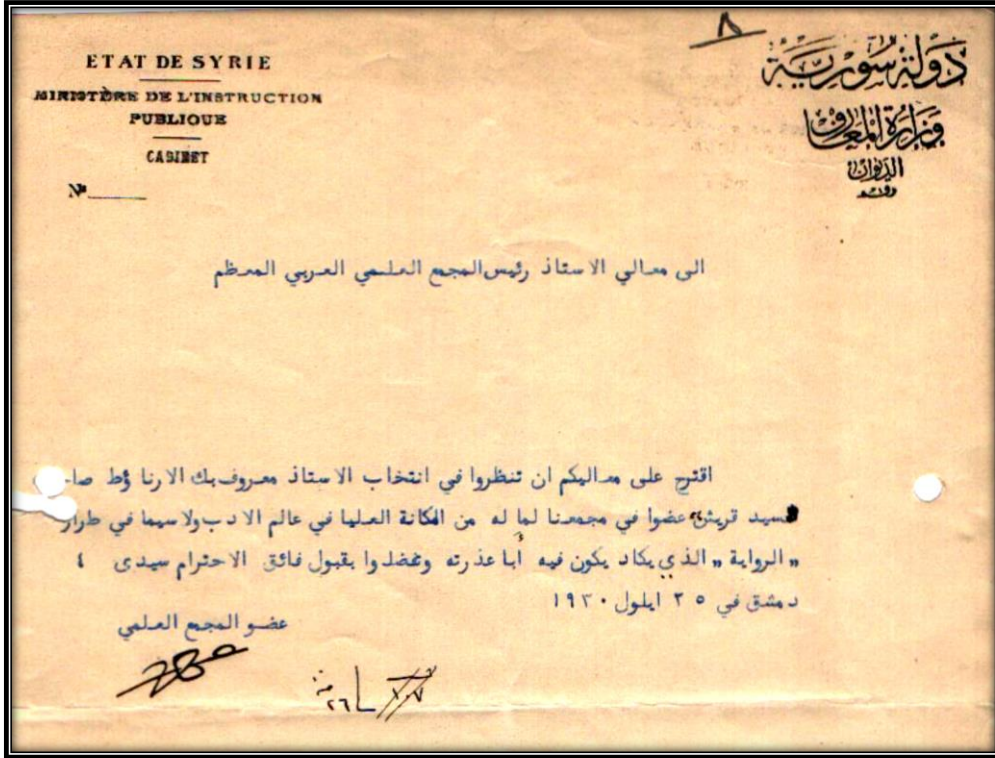 ٨
ETAT DE SYRIE
MINISTÈRE DE L'INSTRUCTION
PUBLIQUE
CABINET
Nº
دولة سورية
وزارة المعارف
الديوان
الى معالي الاستاذ رئيس المجمع العلمي العربي المعظم
اقترح على معاليكم ان تنظروا في انتخاب الاستاذ معروف بك الارناؤط صا
سيد قريش عضوا في مجمعنا لما له من المكانة العليا في عالم الادب ولاسيما في طراز
" الرواية " الذي يكاد يكون فيه ابا عذرته وتفضلوا بقبول فائق الاحترام سيدى ٤
دمشق في ٢٥ ايلول ١٩٣٠
عضو المجمع العلمي